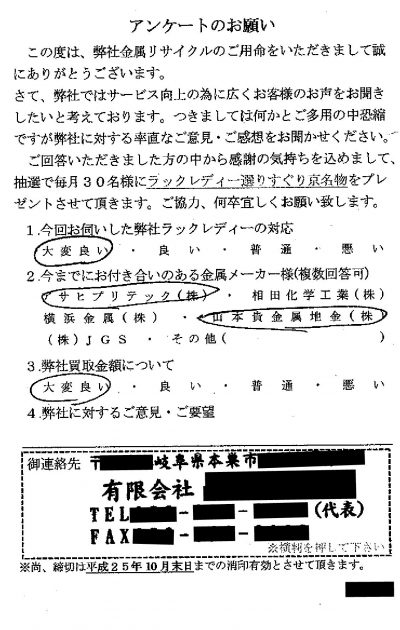 アンケートのお願い
この度は、弊社金属リサイクルのご用命をいただきまして誠
にありがとうございます。
さて、弊社ではサービス向上の為に広くお客様のお声をお聞き
したいと考えております。つきましては何かとご多用の中恐縮
ですが弊社に対する率直なご意見・ご感想をお聞かせください。
ご回答いただきました方の中から感謝の気持ちを込めまして、
抽選で毎月30名様にラックレディー選りすぐり京名物をプレ
ゼントさせて頂きます。ご協力、何卒宜しくお願い致します。
1.今回お伺いした弊社ラックレディーの対応
大変良い ・ 良い ・ 普通 ・ 悪い
2.今までにお付き合いのある金属メーカー様(複数回答可)
アサヒプリテック(株) ・ 相田化学工業(株)
横浜金属(株) ・ 山本貴金属地金(株)
(株)JGS ・ その他( )
3.弊社買取金額について
大変良い ・ 良い ・ 普通 ・ 悪い
4.弊社に対するご意見・ご要望
御連絡先 〒 岐阜県本巣市
有限会社
TEL - - (代表)
FAX - -
※横判を押して下さい
※尚、締切は平成25年10月末日までの消印有効とさせて頂きます。